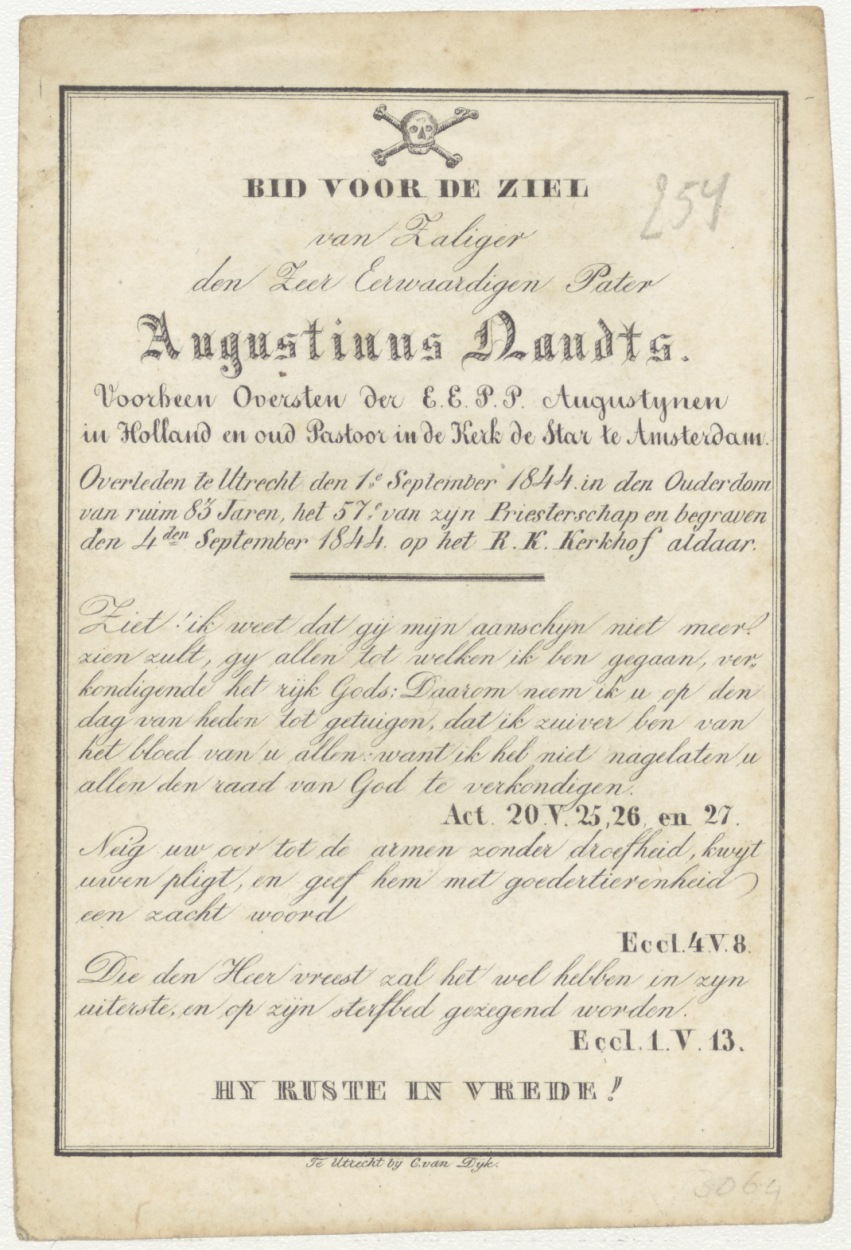 BID VOOR DE ZIEL
254
van Zaliger
den Zeer Eerwaardigen Pater
Augustinus Naudts.
Voorheen Oversten der E.E.P.P. Augustynen
in Holland en oud Pastoor in de Kerk de Star te Amsterdam.
Overleden te Utrecht den 1.e September 1844. in den Ouderdom
van ruim 83 Jaren, het 57.e van zyn Priesterschap en begraven
den 4den September 1844. op het R. K. Kerkhof aldaar.
Ziet! ik weet dat gij mijn aanschyn niet meer
zien zult, gy allen tot welken ik ben gegaan, ver-
kondigende het rijk Gods: Daarom neem ik u op den
dag van heden tot getuigen, dat ik zuiver ben van
het bloed van u allen: want ik heb niet nagelaten u
allen den raad van God te verkondigen.
Act. 20. V. 25, 26, en 27.
Neig uw oor tot de armen zonder droefheid, kwyt
uwen pligt, en geef hem met goedertierenheid
een zacht woord
Eccl. 4 V. 8.
Die den Heer vreest zal het wel hebben in zyn
uiterste, en op zijn sterfbed gezegend worden.
Eccl. 1. V. 13.
HY RUSTE IN VREDE!
Te Utrecht by C. van Dyk.
3064